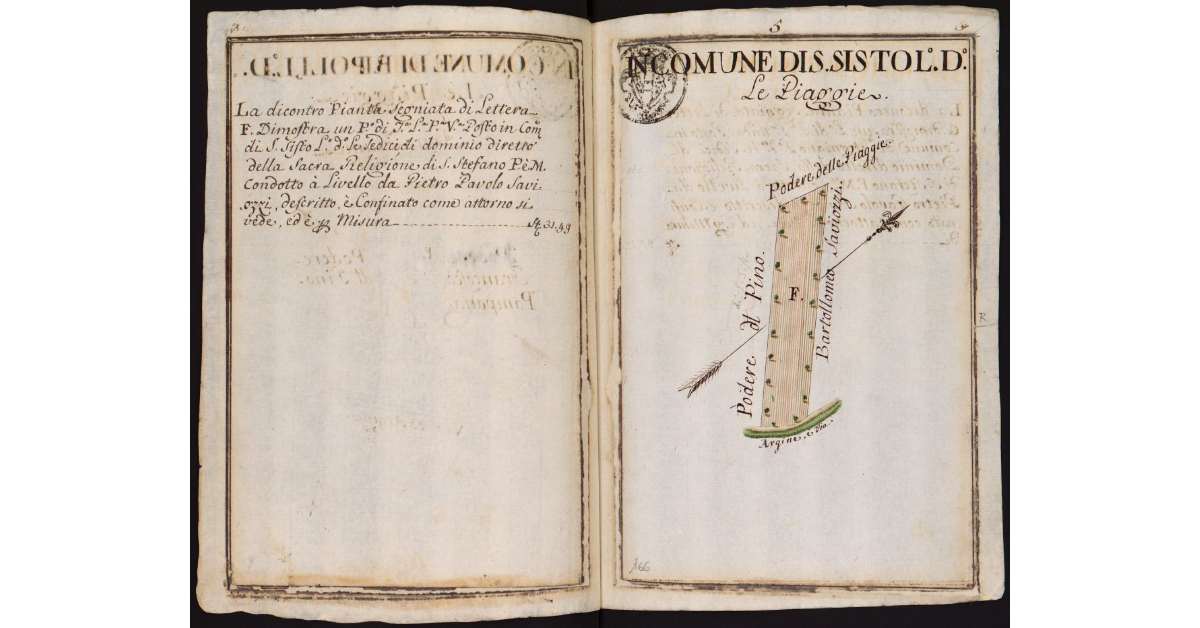 La dicontro Pianta Segniata di Lettera
F. Dimostra un P.º di T.ª L.ª P.ª V.ª Posto in Com.
di S. Sisto L.º d.º le Sedici di dominio diretto
della Sacra Religione di S. Stefano P. è M.
Condotto à Livello da Pietro Pavolo Savi-
ozzi, descritto, è Confinato come attorno si
vede, ed è Misura 31.49
5
IN COMUNE DI S. SISTO L.º D.º
Le Piaggie.
Podere delle Piaggie.
Podere dl Pino.
F.
Bartollomeo Saviozzi.
Argine, è Via.
166
R